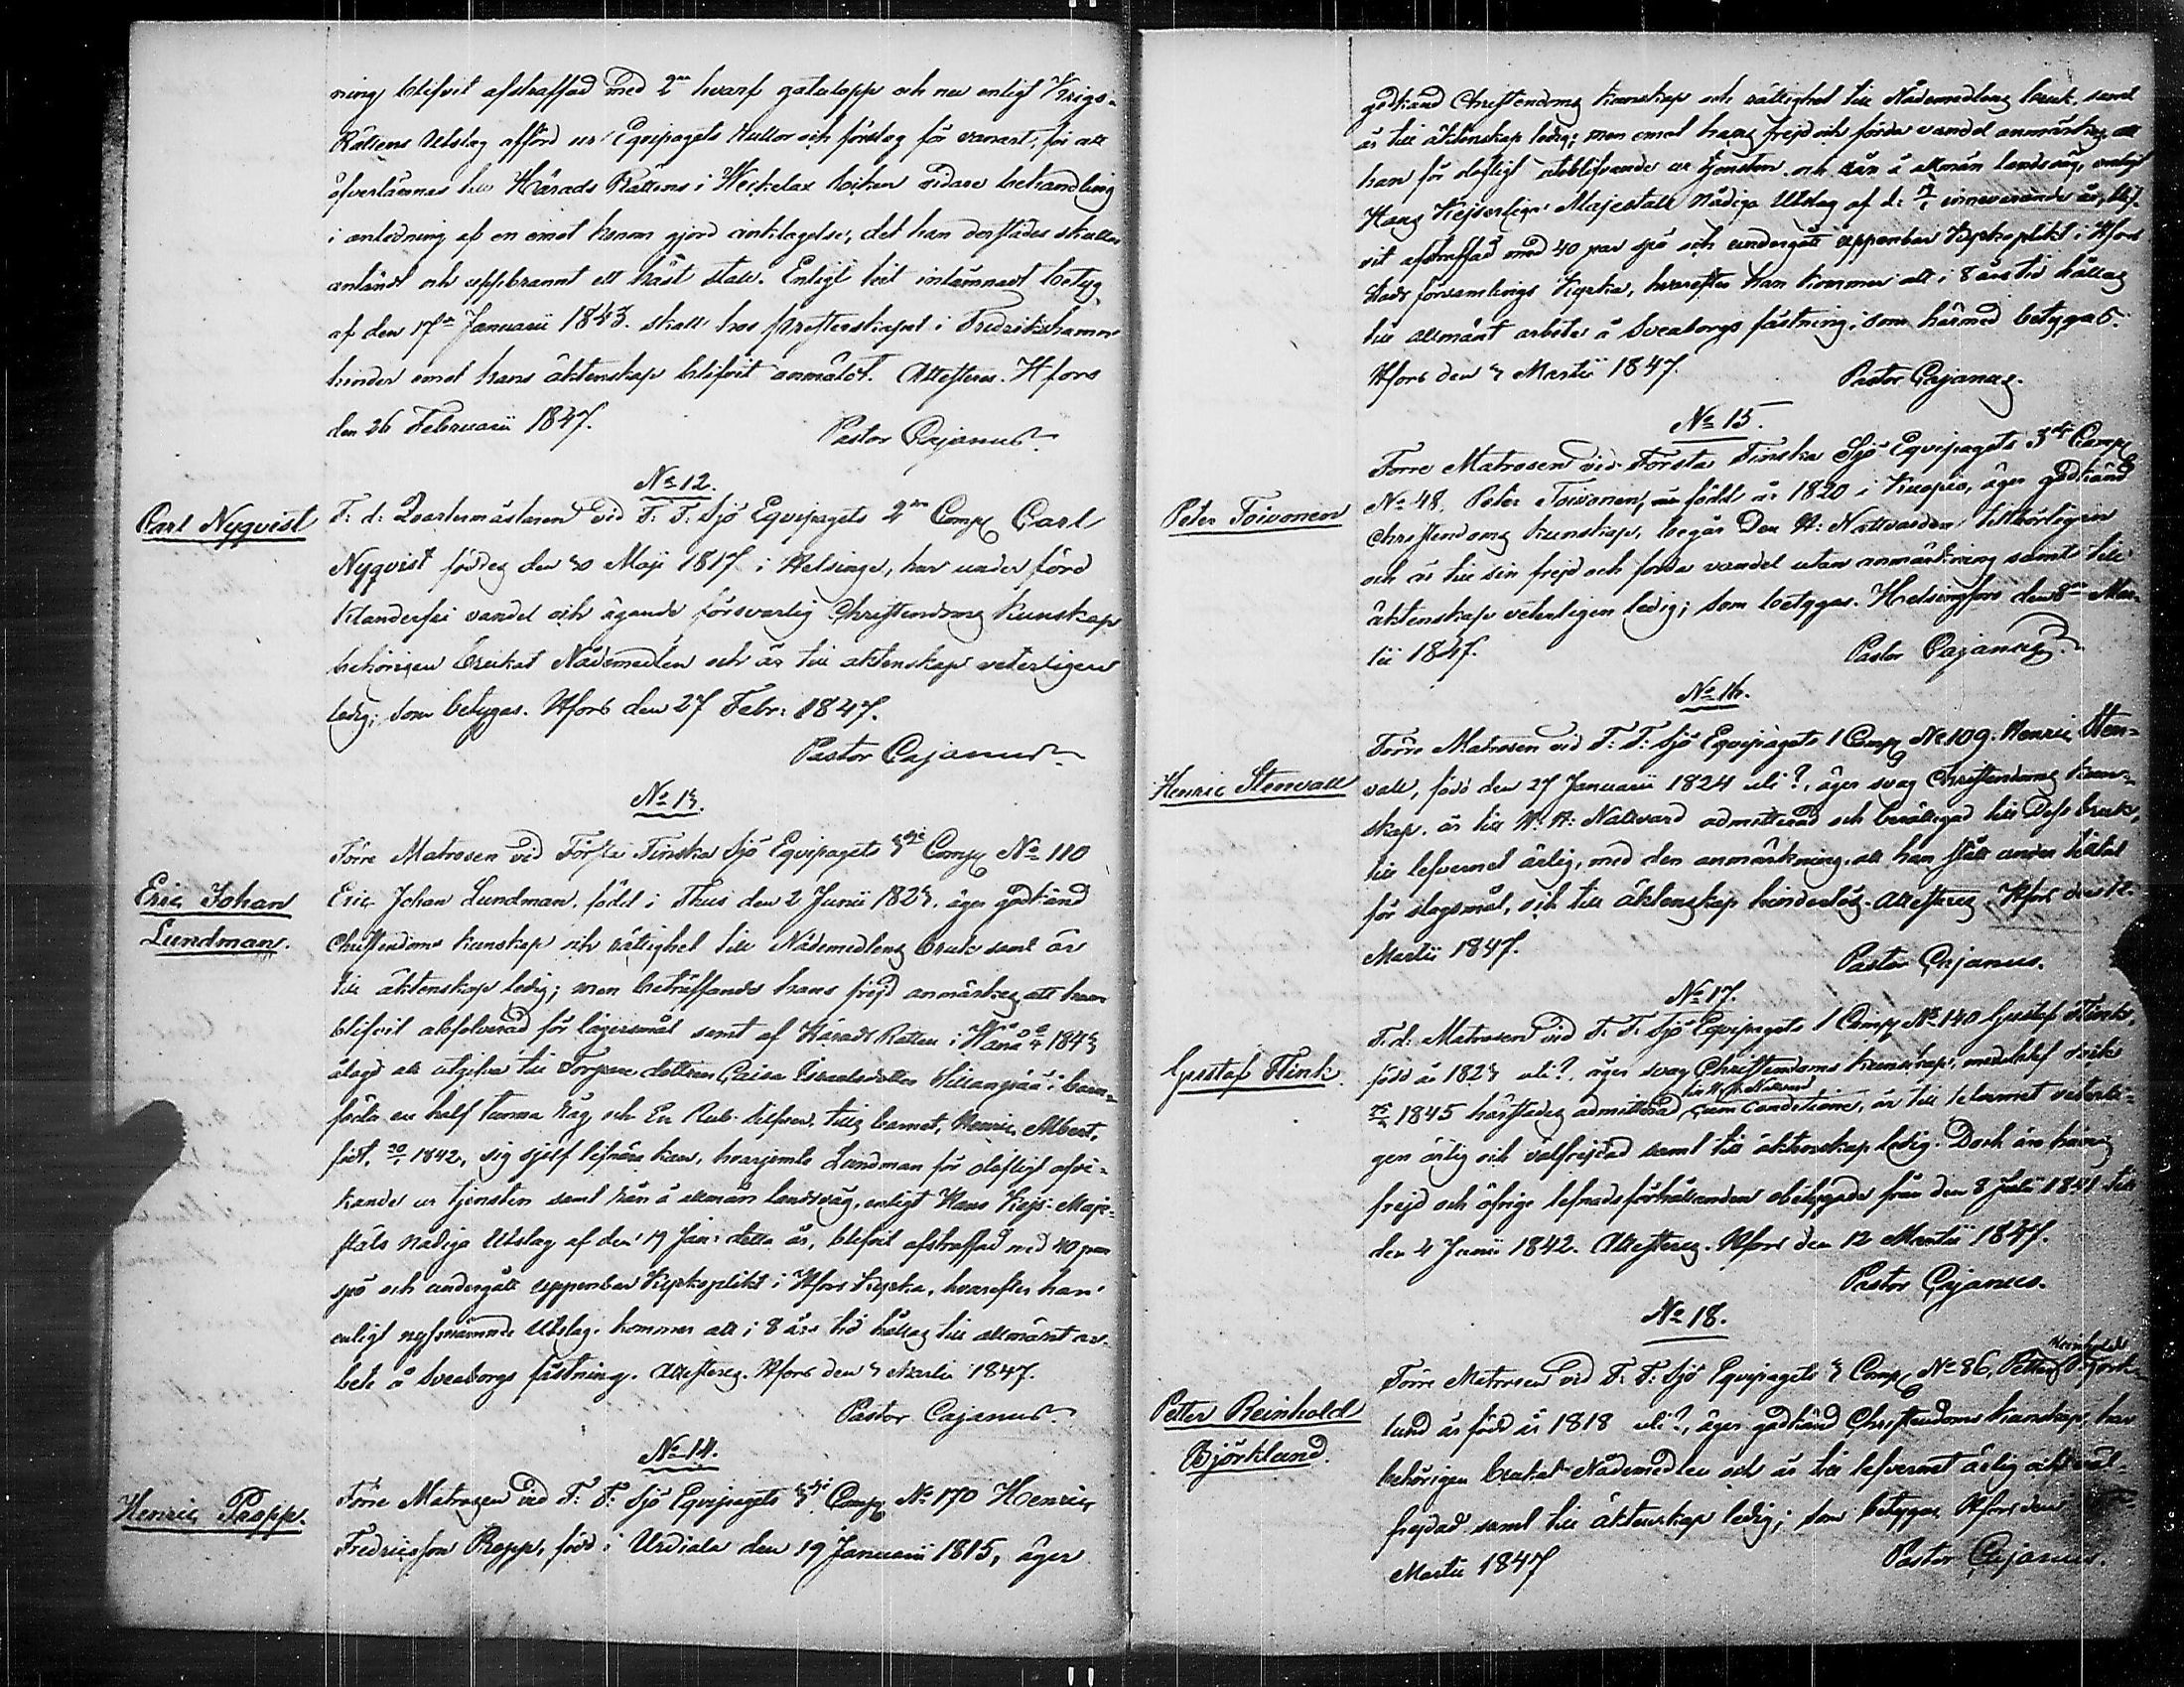 ning blifvit afstraffad med 2ne hvarf gatulopp och nu enligt Krigs-
Rättens Utslag afförd ur Equipagets Rullor och förslag för vanart, för att
öfverlämnas till Härads Rättens i Weckelax Socken vidare behandling
i anledning af en emot honom gjord anklagelse, det han derstädes skulle
antändt och uppbrannt ett häst stall. Enligt hit inlämnadt betyg
af den 17de Januarii 1843 skall hos Presterskapet i Fredrikshamn
hinder emot hans äktenskap blifvit anmäldt. Attesteras. Hfors
den 26 Februarii 1847.
Pastor Cajanus
No 12.
Carl Nyqvist
F: d: Qvartermästaren vid F: F: Sjö Equipagets 2dra Comp Carl
Nyqvist föddes den 20 Maji 1817 i Helsinge, har under förd
klanderfri vandel och ägande försvarlig Christendoms kunskap
behörigen brukat Nådemedlen och är till äktenskap veterligen
ledig; som betygas. Hfors den 27 Febr: 1847.
Pastor Cajanus
No 13.
Eric Johan
Lundman.
Förre Matrosen vid Första Finska Sjö Equipagets 3dje Comp No 110
Eric Johan Lundman, född i Thus den 2 Junii 1823, äger godkänd
Christendoms kunskap och rättighet till Nådemedlens bruk samt är
till äktenskap ledig; men beträffande hans frejd anmärkes att han
blifvit absolverad för lägersmål samt af Härads Rätten i 1843
ålagd att utgifva till Torpare dottren Caisa Israelsdotter i barn-
föda en half tunna råg och En Rub. silfver, tills barnet, Henric Albert,
födt, 1842, sig sjelf lifnära kan, hvarjemte Lundman för olofligt afvi-
kande ur tjensten samt rån å allmän landsväg, enligt Hans Kejs: Maje-
stäts Nådiga Utslag af den 19 Jan: detta år, blifvit afstraffad med 40 par
spö och undergått uppenbar Kyrkoplikt i Hfors Kyrka, hvarefter han
enligt nyssnämnde Utslag kommer att i 8 års tid hållas till allmänt ar-
bete å Sveaborgs fästning. Attesteras. Hfors den 3 Martii 1847.
Pastor Cajanus
No 14.
Henric Propp.
Förre Matrosen vid F: F: Sjö Equipagets 3dje Comp No 170 Henric
Fredricsson Propp, född i Urdiala den 19 Januarii 1815, äger
godkänd Christendoms kunskap och rättighet till Nådemedlens bruk, samt
är till äktenskap ledig; men emot hans frejd och förda vandel anmärkes att
han för olofligt uteblifvande ur tjensten och rån å allmän landsväg, enligt
Hans Kejserliga Majestäts Nådiga Utslag af d: innevarande år, blif-
vit afstraffad med 40 par spö och undergått uppenbar Kyrkoplikt i Hfors
Stads församlings Kyrka, hvarefter han kommer att i 8 års tid hållas
till allmänt arbete å Sveaborgs fästning; som härmed betygas.
Hfors den 3 Martii 1847.
Pastor Cajanus.
No 15.
Peter Toivonen
Förre Matrosen vid Första Finska Sjö Equipagets 3dje Comp
No 48, Peter Toivonen, född år 1820 i Kuopio, äger godkänd
Christendoms kunskap, begår Den H: Nattvarden tillbörligen
och är till sin frejd och förda vandel utan anmärkning samt till
äktenskap veterligen ledig; som betygas. Helsingfors den 8de Mar-
tii 1847.
Pastor Cajanus
No 16.
Henric Stenvall
Förre Matrosen vid F: F: Sjö Equipagets 1 Comp No 109 Henric Sten-
vall, född den 27 Januarii 1824 uti?, äger svag Christendoms kun-
skap, är till H: H: Nattvard admitterad och berättigad till Dess bruk,
till lefvernet ärlig, med den anmärkning, att han stått under tilltal
för slagsmål, och till äktenskap hinderslös. Attesteras. Hfors den 12
Martii 1847.
Pastor Cajanus.
No 17.
Gustaf Flink.
F. d: Matrosen vid F. F. Sjö Equipagets 1 Comp No 140 Gustaf Flink,
född år 1823 uti?, äger svag Christendoms kunskap,
till H. H. Nattvard
1845 härstädes admitterad cum conditione, är till lefvernet veterli-
gen ärlig och välfrejdad samt till äktenskap ledig. Dock äro hans
frejd och öfriga lefnadsförhållanden obetygade från den 8 Julii 1841 till
den 4 Junii 1842. Attesteras. Hfors den 12 Martii 1847.
Pastor Cajanus.
No 18.
Petter Reinhold
Björklund.
Reinhold
Förre Matrosen vid F. F. Sjö Equipagets 3 Comp No 86, Petter Björk-
lund är född år 1818 uti?, äger godkänd Christendoms kunskap, har
behörigen brukat Nådemedlen och är till lefvernet ärlig och väl-
frejdad samt till äktenskap ledig; som betygas Hfors den
Martii 1847
Pastor Cajanus.